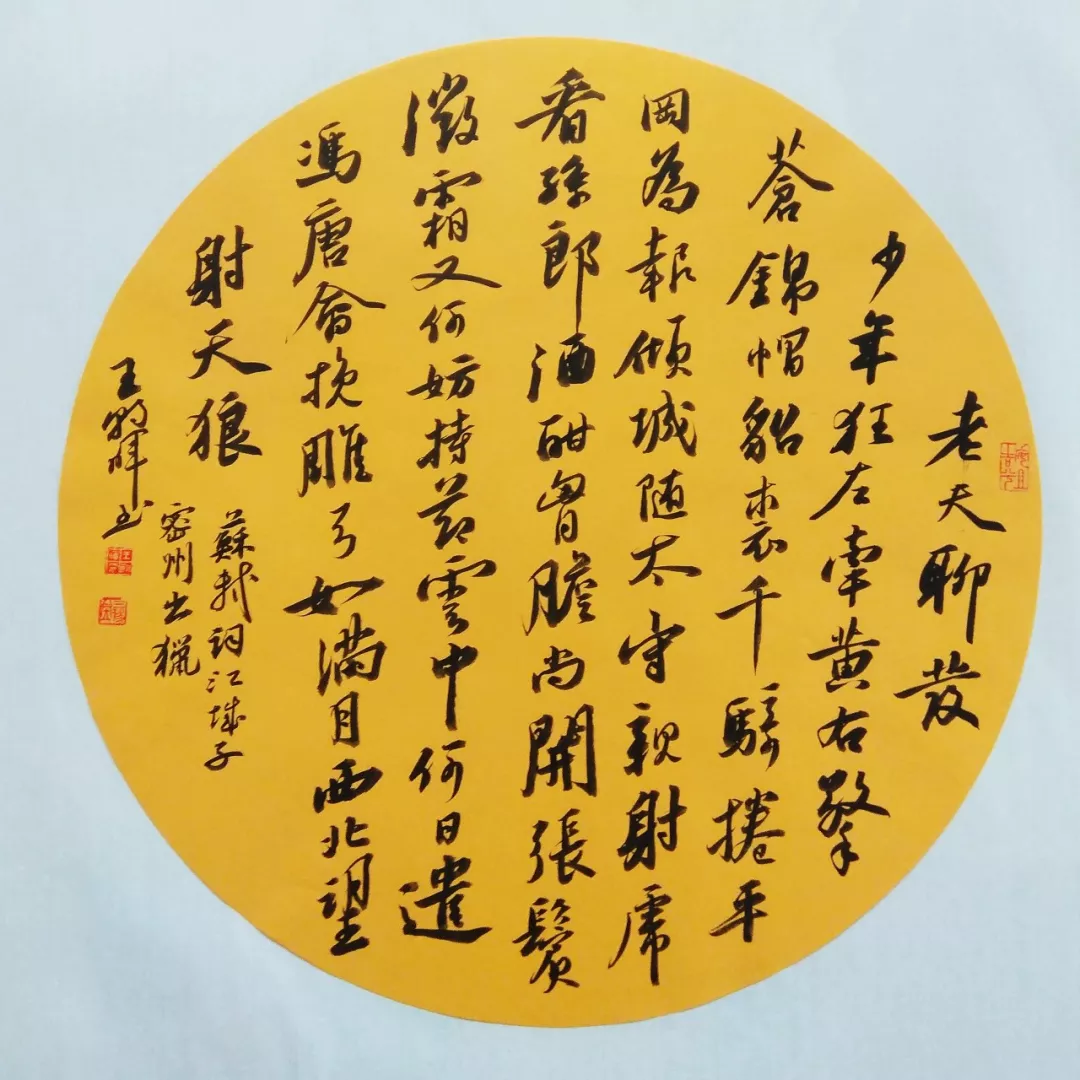 老天聊發
少年狂左牽黄右擎
蒼錦帽貂裘千騎捲平
岡為報傾城随太守親射虎
看孫郎酒酣胷膽尚開張鬢
微霜又何妨持莭雲中何日遣
馮唐會挽雕弓如滿月西北望
射天狼
蘇軾詞江城子
密州出獵
王暉书